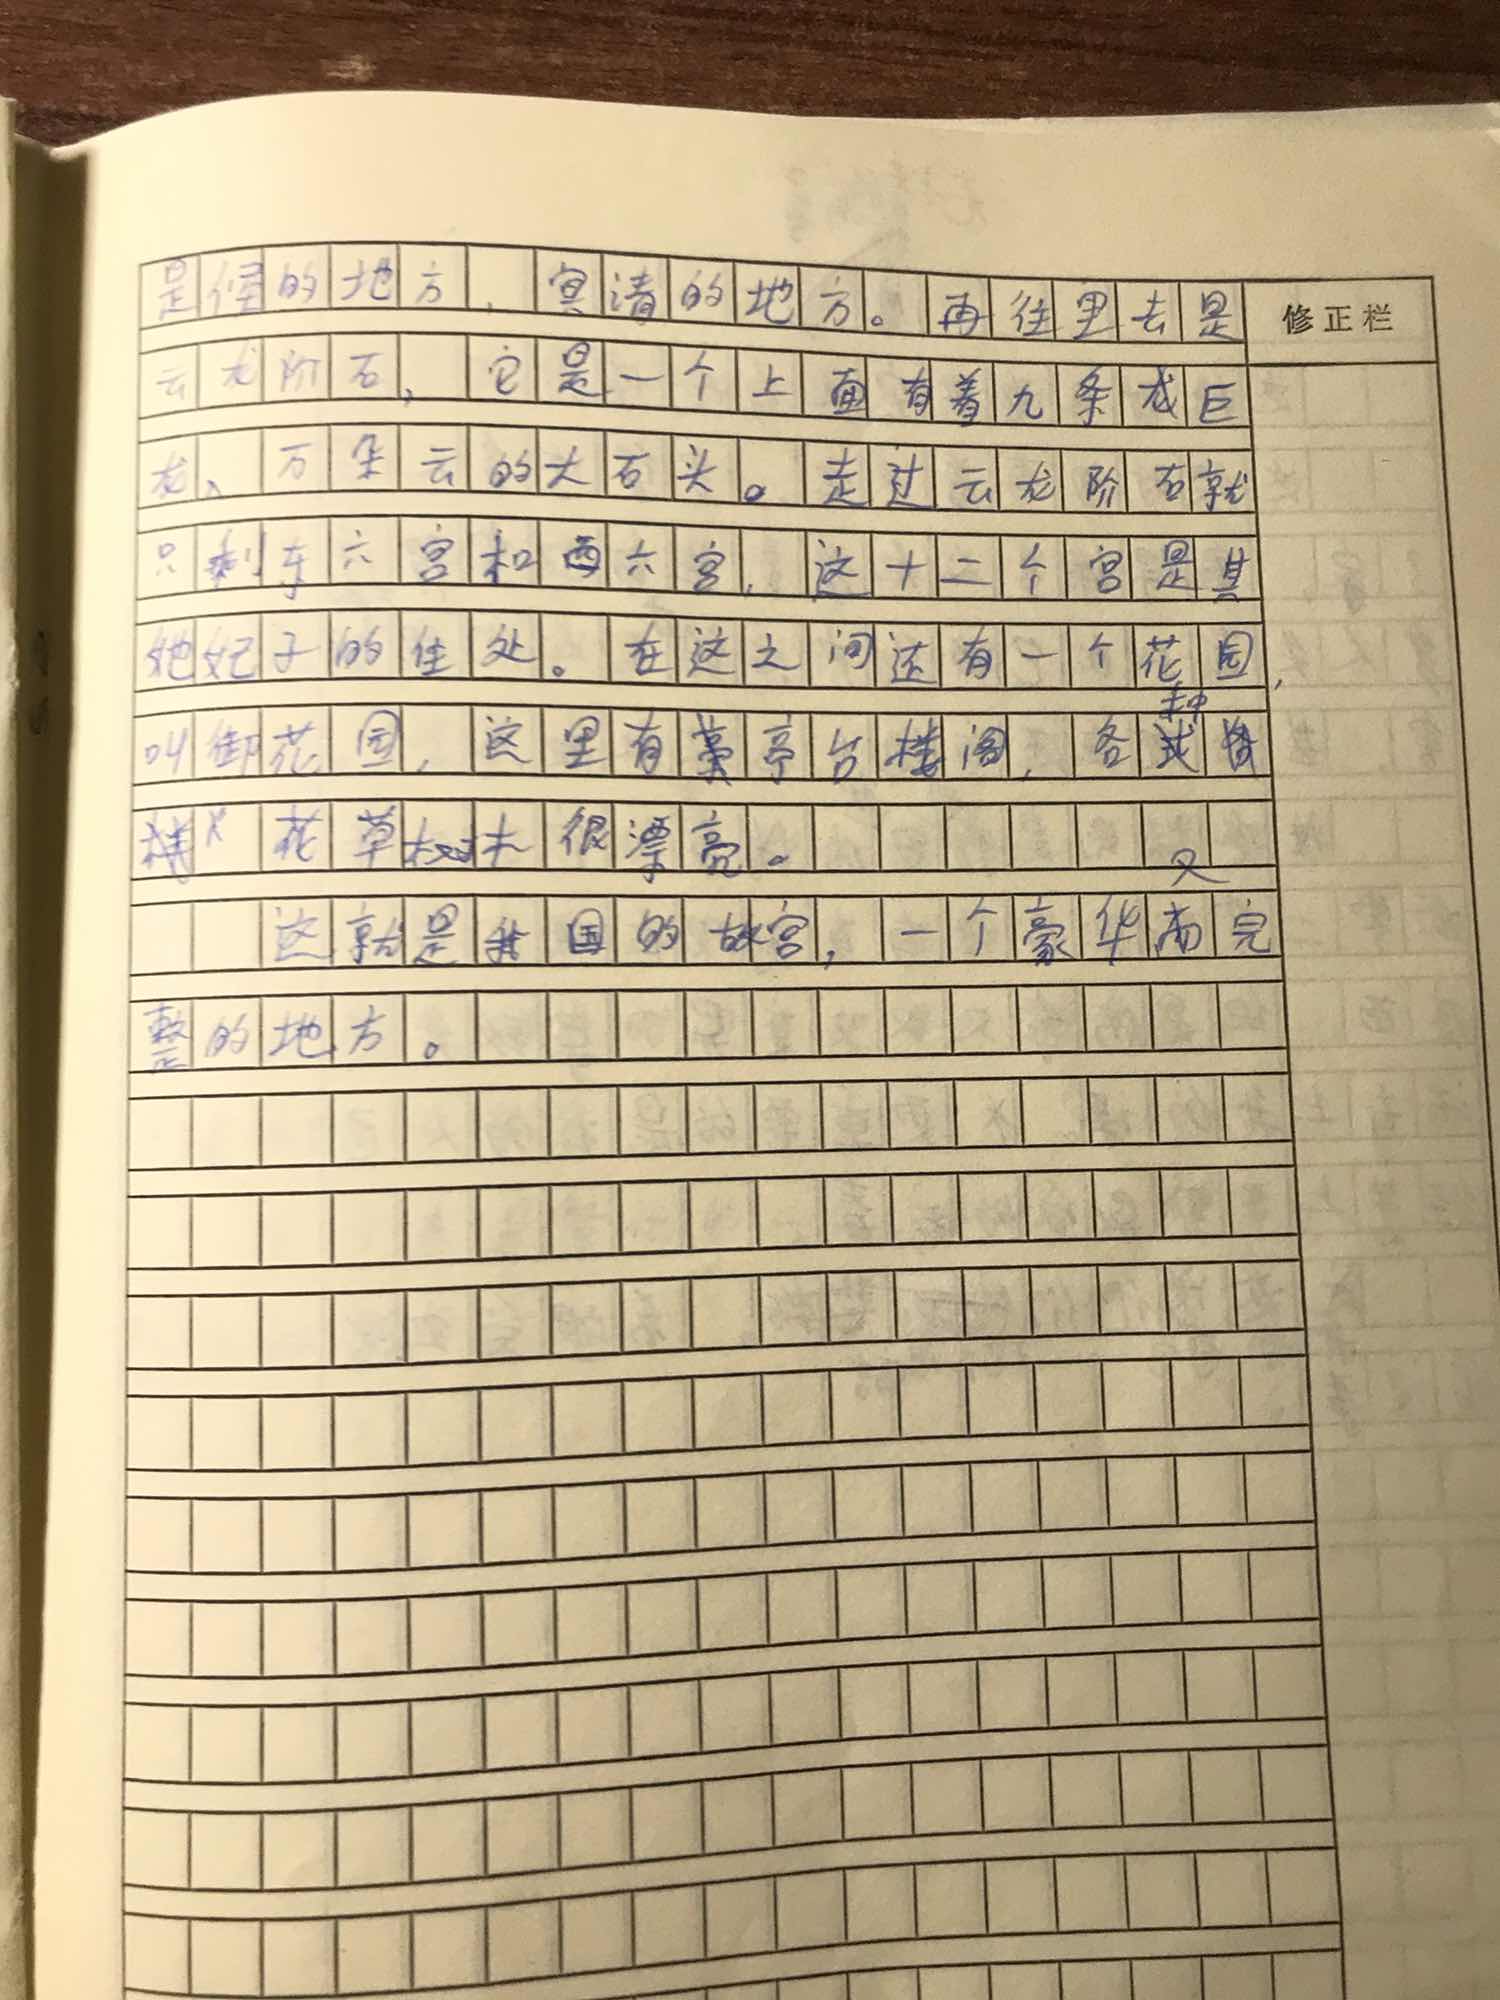 是怪的地方，宴请的地方。再往里去是
修正栏
云龙阶石，它是一个上面有着九条龙巨
龙、万朵云的大石头。走过云龙阶石就
只剩东六宫和西六宫，这十二个宫是其
她妃子的住处。在这之间还有一个花园，
种
叫御花园，这里有亭台楼阁，各式
样 花草树木很漂亮。
又
这就是我国的故宫，一个豪华而完
整的地方。